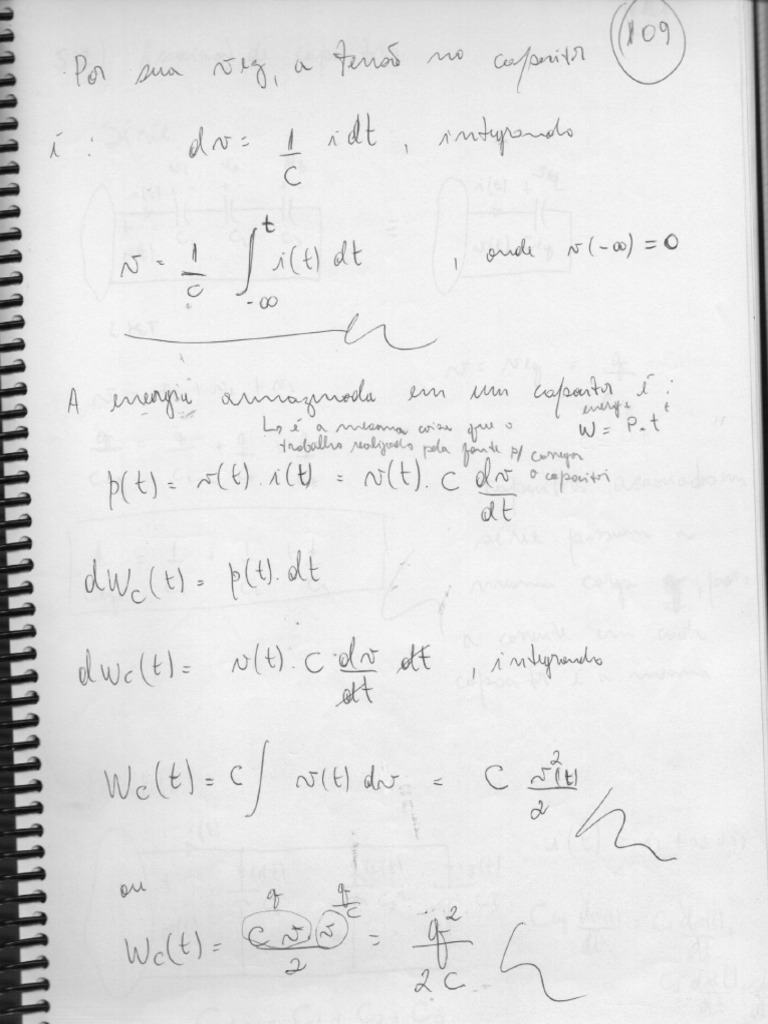 109
Por sua vez, a tensão no capacitor
é: dv = 1/C i dt, integrando
v = 1/C ∫_{-∞}^{t} i(t) dt , onde v(-∞) = 0
A energia armazenada em um capacitor é:
↳ é a mesma coisa que o
trabalho realizado pela fonte p/ carregar
o capacitor
energia
W = P.t
p(t) = v(t).i(t) = v(t). C dv/dt
dWc(t) = p(t).dt
dWc(t) = v(t). C dv/dt dt , integrando
Wc(t) = C ∫ v(t) dv = C v²(t)/2
ou
q q/C
Wc(t) = C v.v/2 = q²/2C